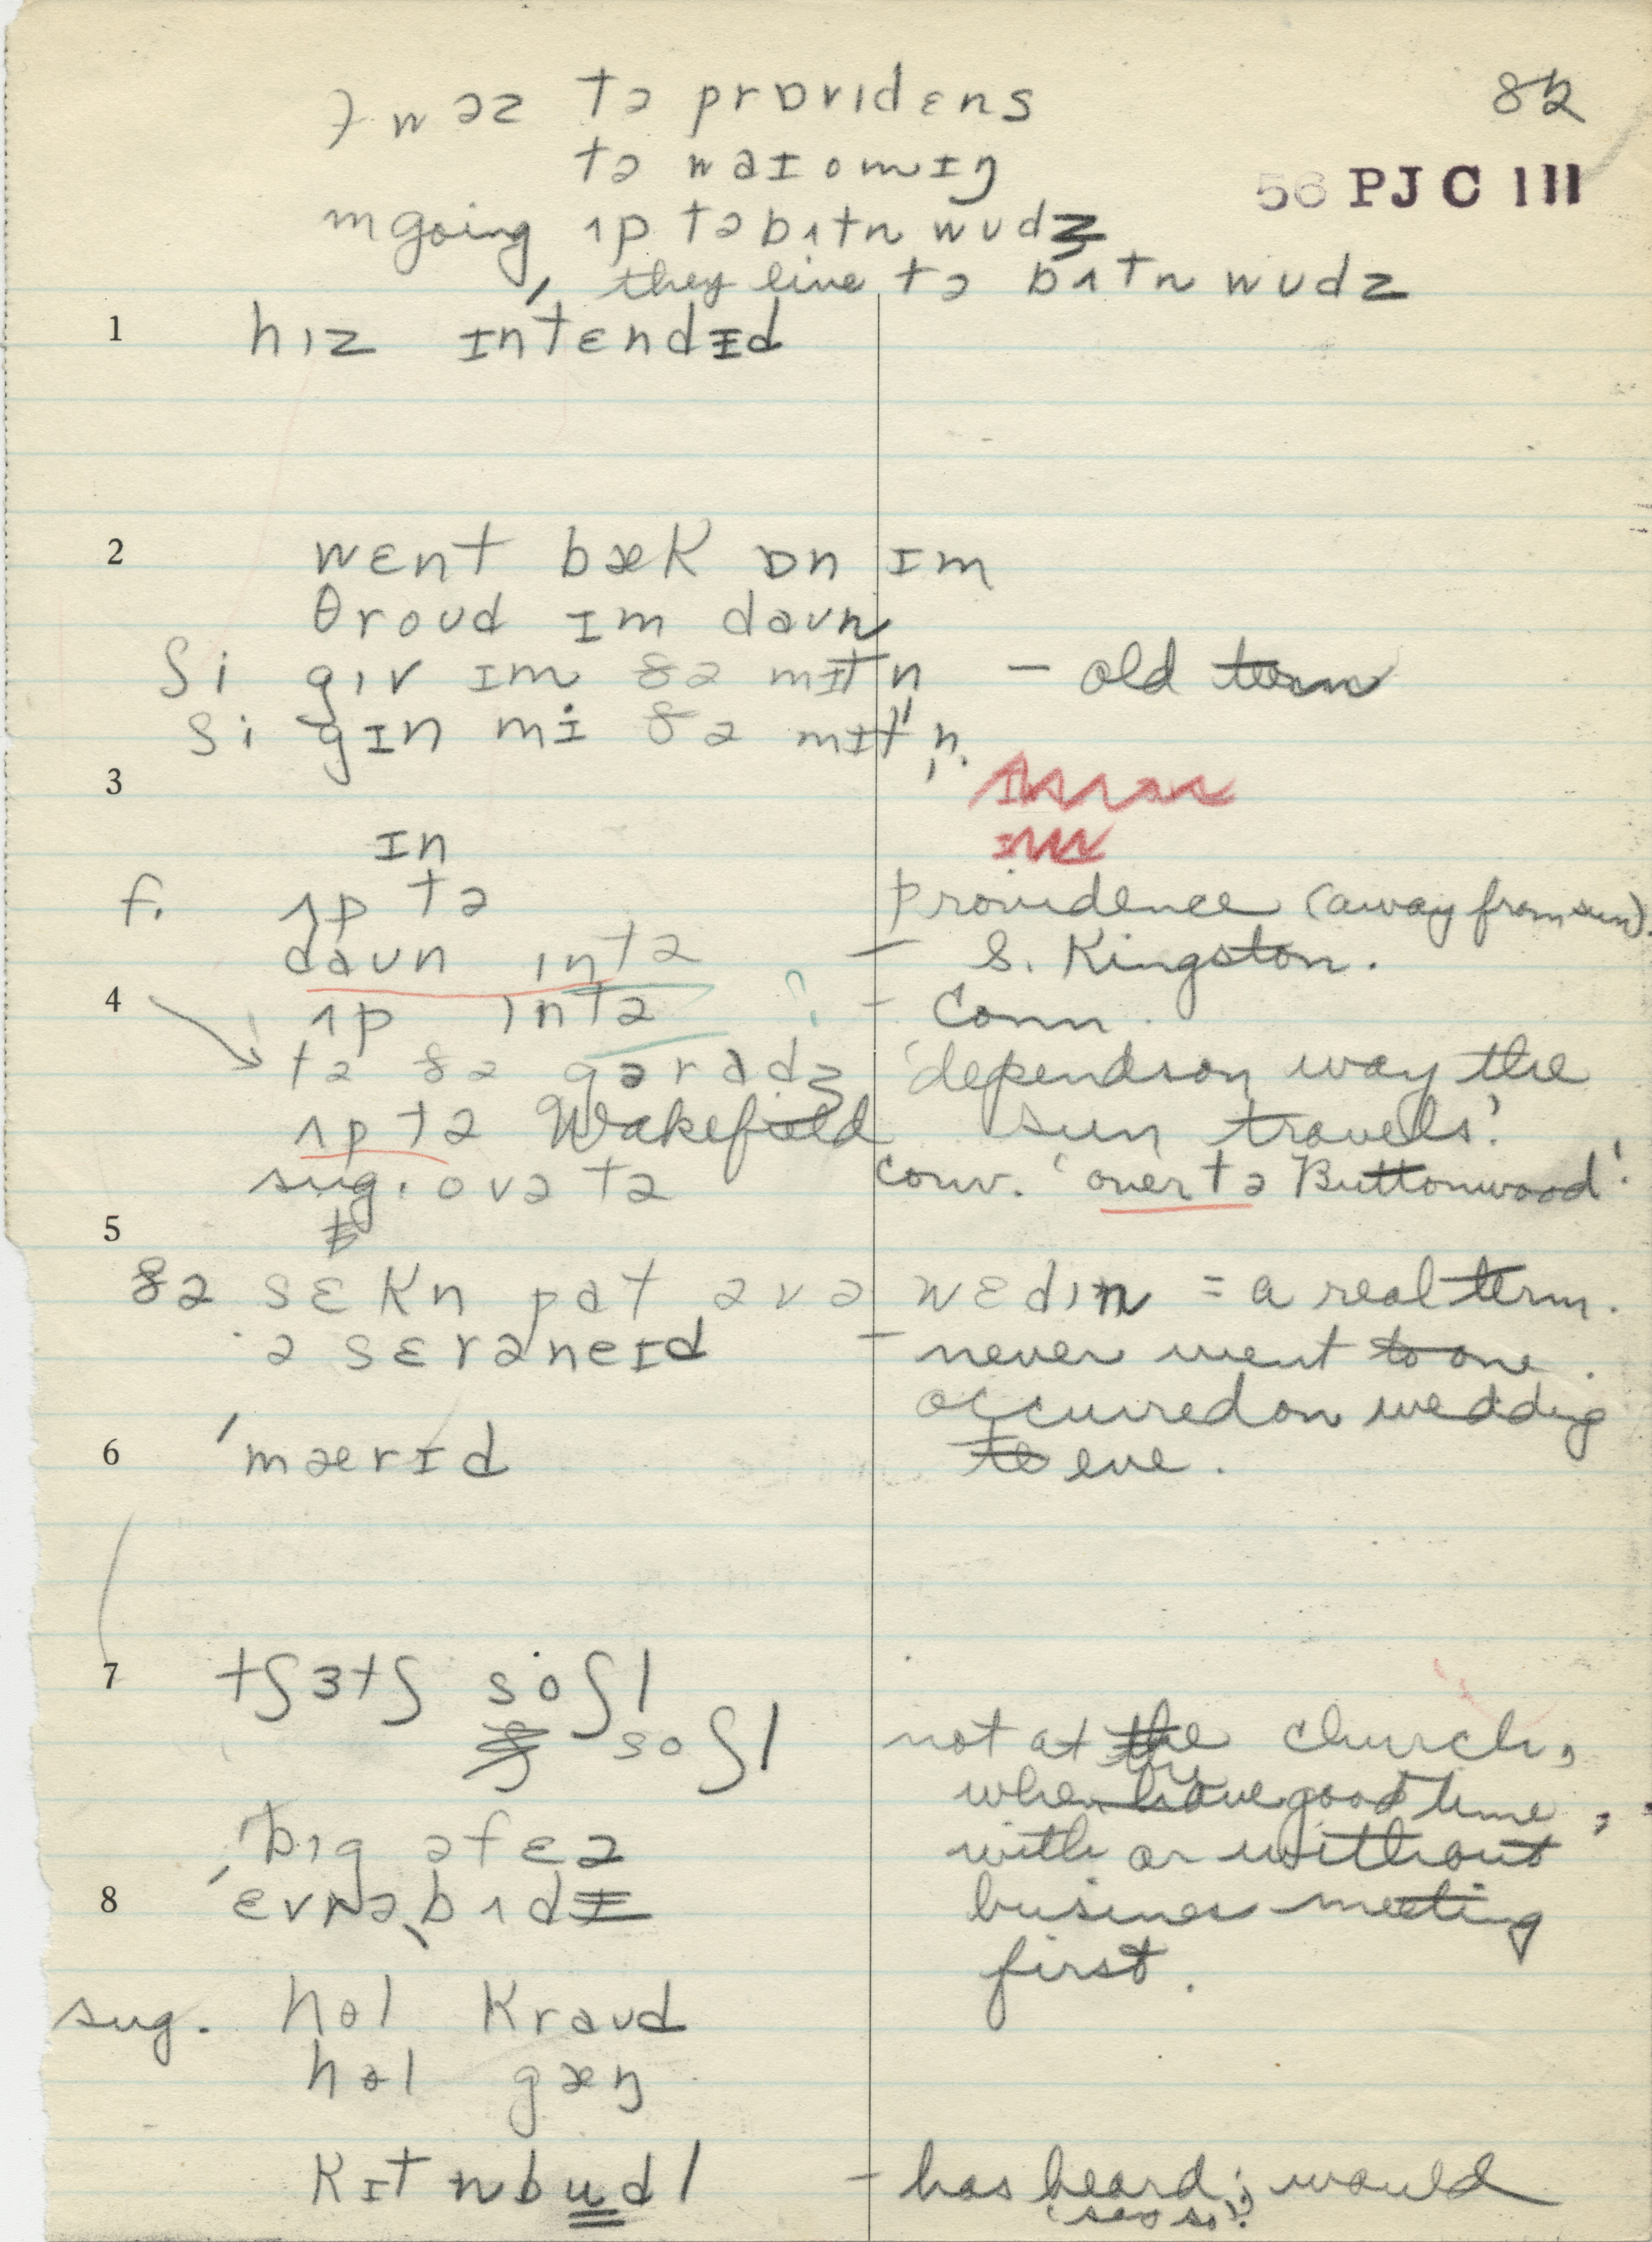 wəz tə prɒvıdɛns
82
tə waɪomɪŋ
56 PJC 111
m going ʌp tə bʌtn wudz
they live tə bʌtn wudz
1 hız ɪnˈtɛndɪd
2 wɛnt bæk ɒn ɪm
θroud ɪm daun
ʃi gıv ɪm ðə mɪtn̩ – old term
ʃi gɪn mi ðə mɪtn̩.
3
ɪn
f. ʌp tə Providence (away from sun).
daun ıntə – S. Kingston.
4 ʌp ıntə ? – Conn.
tə ðə garadʒ 'depends on way the
ʌp tə Wakefield sun travels.'
sug. ovə tə conv. 'over tə Buttonwood'.
5
ðə sɛkn pat əv ə wɛdın = a real term.
ə sɛrəneɪd – never went to one.
occurred on wedding
6 ˈmærɪd eve.
7 tʃɜtʃ soʃl
soʃl not at the church,
when have good time,
bıg əfɛə with or without
8 ˈɛvrəˌbʌdɪ business meeting
first.
sug. hol kraud
hol gæŋ
kɪt n budl – has heard; would